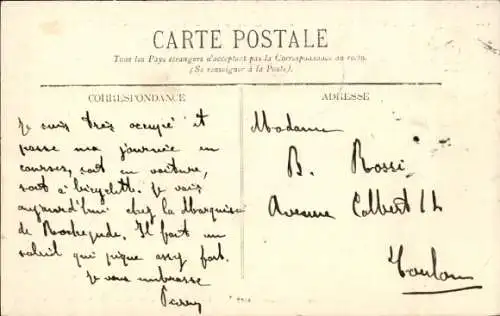 CARTE POSTALE
Tous les Pays étrangers n'acceptent pas la Correspondance au recto.
(Se renseigner à la Poste).
CORRESPONDANCE
Je suis très occupé et
passe ma journée en
courses, soit en voiture,
soit à bicyclette. Je vais
aujourd'hui chez la Marquise
de Rochegude. Il fait un
soleil qui pique assez fort.
Je vous embrasse
Pierre
ADRESSE
Madame
B. Rossi
Avenue Colbert 12
Toulon